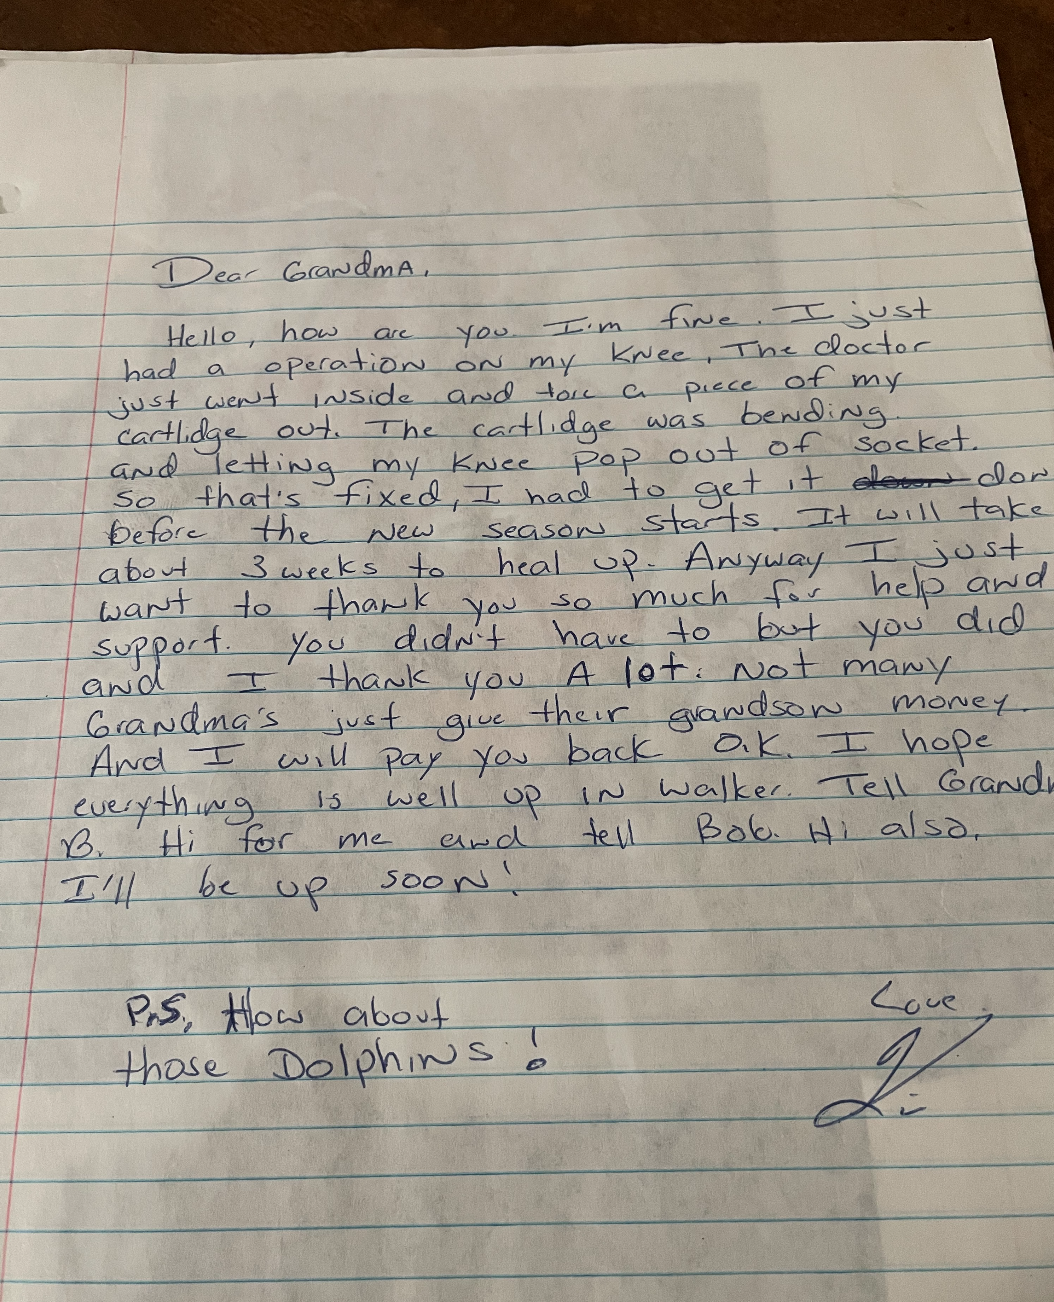 Dear Grandma,
Hello, how are you. I'm fine. I just
had a operation on my knee. The doctor
just went inside and torc a piece of my
cartlidge out. The cartlidge was bending
and letting my knee pop out of socket.
So that's fixed, I had to get it down don
before the new season starts. It will take
about 3 weeks to heal up. Anyway I just
want to thank you so much for help and
support. You didn't have to but you did
and I thank you A lot. Not many
Grandma's just give their grandson money.
And I will pay you back O.K. I hope
everything is well up in Walker. Tell Grandm
B. Hi for me and tell Bob. Hi also.
I'll be up soon!
P.S. How about
those Dolphins!
Love,